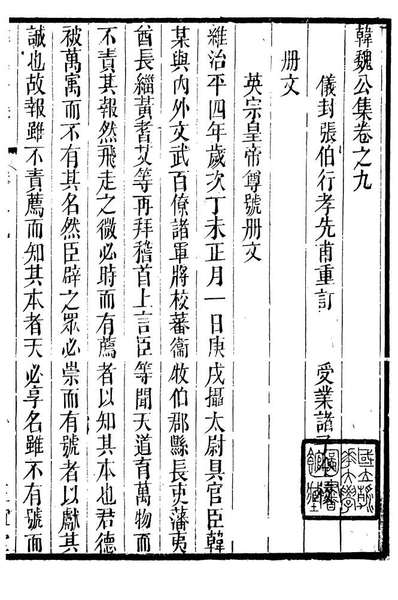 韓魏公集卷之九
儀封張伯行孝先甫重訂 受業諸子
册文
英宗皇帝尊號册文
維治平四年歲次丁未正月一日庚戌攝太尉具官臣韓
某與內外文武百僚諸軍將校蕃衞牧伯郡縣長吏藩夷
酋長緇黃耆艾等再拜稽首上言臣等聞天道育萬物而
不責其報然飛走之微必時而有薦者以知其本也君德
被萬寓而不有其名然臣辟之眾必崇而有號者以獻其
誠也故報雖不責薦而知其本者天必享名雖不有號而